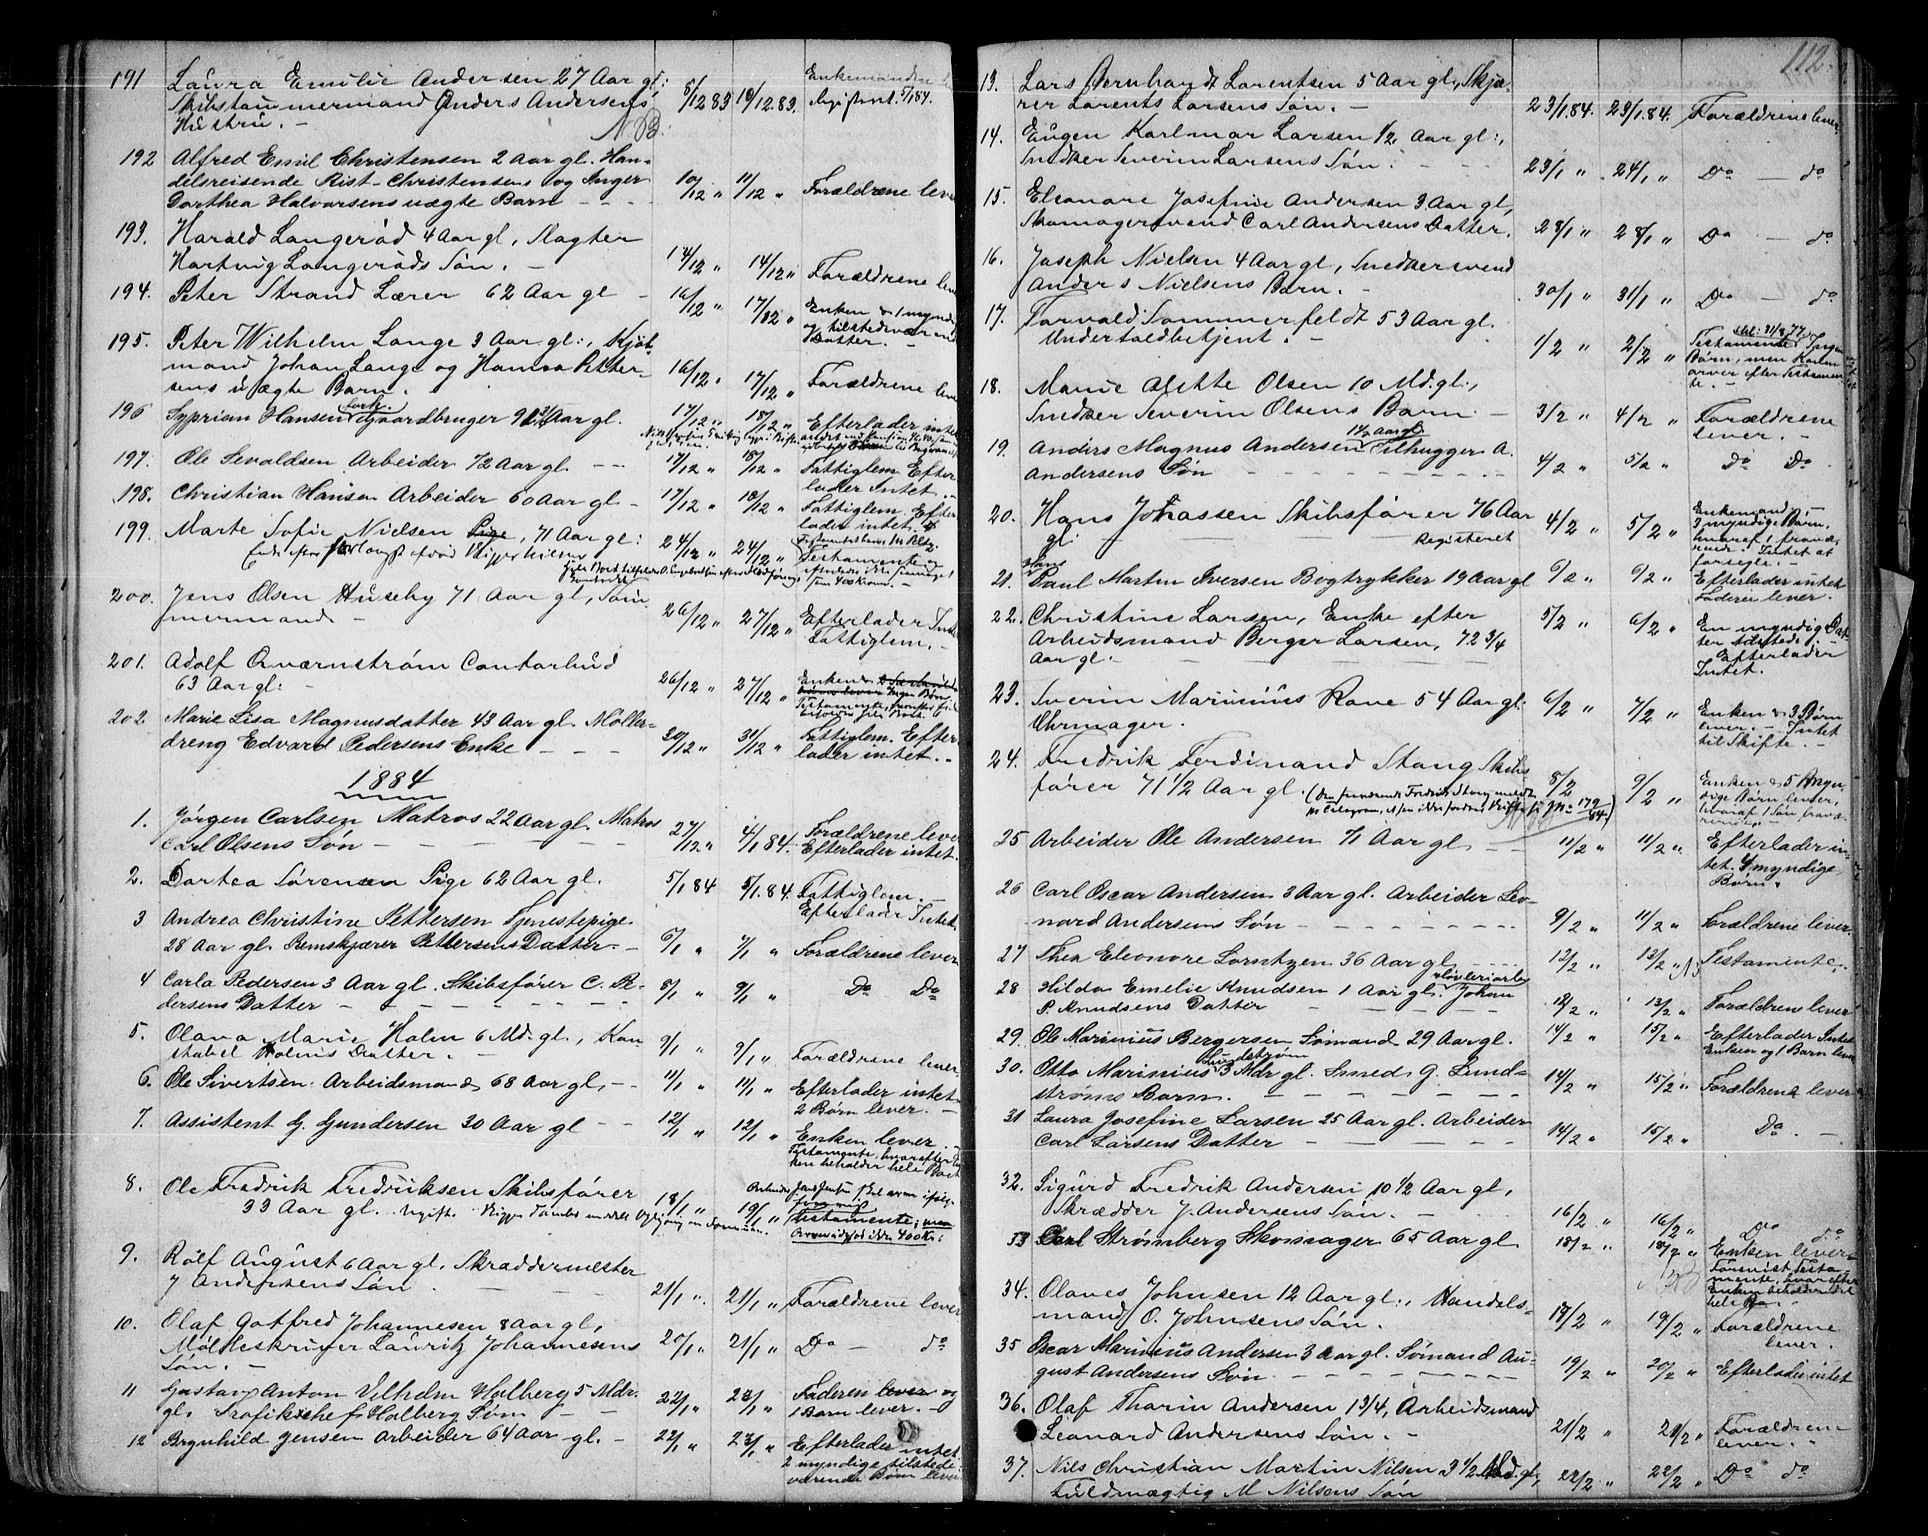 112.
191 Laura Emilie Andersen 27 Aar gl: 8/12 83 10/12.83. Enkemanden
Skibstømmermand Anders Andersens Registreret. 5/1 84.
Hustru. – NB.
192 Alfred Emil Christensen 2 Aar gl. Han- 10/12 " 11/12 " Forældrene leve
delsreisende Rist-Christensens og Inger
Dorthea Halvorsens uægte Barn - - -
193. Harald Langerød 4 Aar gl, Slagter
Hartvig Langerøds Søn. – 14/12 " 14/12 " Forældrene leve
194. Peter Strand Lærer 62 Aar gl - 16/12 " 17/12 " Enken & 1 mynd
og tilstedeværend
Datter. –
195. Peter Wilhelm Lange 3 Aar gl:, Kjøb-
mand Johan Lange og Hanna Petter-
sens uægte Barn. 16/12 " 17/12 " Forældrene leve
196 Syprian Hansen Gaardbruger 91 Aar gl. 17/12 " 18/12 " Efterlader intet
197. Ole Sevaldsen Arbeider 72 Aar gl. - - 17/12 " 18/12 " Fattiglem Efter
lader Intet. –
198. Christian Hansen Arbeider 60 Aar gl - 17/12 " 18/12 " Fattiglem. Efter
lader intet.
199. Marte Sofie Nielsen Pige, 71 Aar gl: 24/12 " 24/12 " Testamente og
efterlader ikke
200. Jens Olsen Huseby 71 Aar gl, Tøm-
mermand – 26/12 " 27/12 " Efterlader Int
Fattiglem. –
201. Adolf Qværnstrøm Contorbud
63 Aar gl: – 26/12 " 27/12 " Enken
202. Marie Lisa Magnusdatter 43 Aar gl. Mølle-
dreng Edvard Pedersens Enke - - - 30/12 " 31/12 " Fattiglem. Efter
lader intet. –
1884
1. Jørgen Carlsen Matros 22 Aar gl. Matros
Carl Olsens Søn - - - 27/12 " 4/1 84. Forældrene leve
Efterlader intet.
2. Dortea Sørensen Pige 62 Aar gl. 5/1 84 5/1.84. Fattiglem. –
Efterlader Intet
3 Andrea Christine Pettersen Tjenestepige
28 Aar gl. Remskjærer Pettersens Datter. – 6/1 " 7/1 " Forældrene lever
4 Carla Pedersen 3 Aar gl. Skibsfører C. Pe-
dersens Datter - - - 8/1 " 9/1 " Do Do
5. Olava Marie Holm 6 Md. gl., Kon-
stabel Holms Datter. – 9/1 " 9/1 " Forældrene lever
6. Ole Sivertsen Arbeidsmand 68 Aar gl. - - 11/1 " 11/1 " Efterlader intet
2 Børn lever. –
7. Assistent G. Gundersen 30 Aar gl - - 12/1 " 12/1 " Enken lever. –
Testamente, hvorefter En
ken beholder hele Boet
8. Ole Fredrik Fredriksen Skibsfører
33 Aar gl. Ugift. 18/1 " 19/1 " Testamente, men
9. Rolf August 6 Aar gl. Skræddermester
J Andersens Søn. 21/1 " 21/1 " Forældrene lever
10. Olaf Gotfred Johannesen 8 Aar gl,
Mølleskriver Lauritz Johannesens
Søn. – 20/1 " 21/1 " Do – do
11 Gustav Anton Vilhelm Holberg 5 Mdr.
gl. Trafikchef Holberg Søn - - 22/1 " 23/1 " Faderen lever og
1 Barn lever. –
12 Brynhild Jensen Arbeider 64 Aar gl. – 22/1 " 23/1 " Efterlader intet
2 myndige tilstede
værende Børn lever
13. Lars Bernhardt Larentsen 5 Aar gl, Skjæ-
rer Larents Larsens Søn. – 23/1.84. 23/1.84. Forældrene lever.
14. Eugen Karlmar Larsen 1/2 Aar gl:,
Snedker Severin Larsens Søn. 23/1 " 24/1 " Do – do
15. Eleonore Josefine Andersen 3 Aar gl,
Skomagersvend Carl Andersens Datter. 28/1 " 28/1 " Do – do
16. Joseph Nielsen 4 Aar gl, Snedkersvend
Anders Nielsens Barn. – 30/1 " 31/1 " Do – do
17. Torvald Sommerfeldt 53 Aar gl.
Undertoldbetjent. – 1/2 " 2/2 " Testamente Ingen
Børn, men Konen
arver efter Testamen-
te. –
18. Marie Alette Olsen 10 Md. gl:,
Snedker Severin Olsens Barn. – 3/2 " 4/2 " Forældrene
lever. –
19. Anders Magnus Andersen 1 1/2 Aar gl. Stenhugger A.
Andersens Søn - - - 4/2 " 5/2 " Do Do
20. Hans Johassen Skibsfører 76 Aar
gl. – – Registreret 4/2 " 5/2 " Enkemand, –
3 myndige Børn,
hvoraf 1 fravæ-
rende. Intet at
forsegle. –
21. Hans Paul Martin Iversen Bogtrykker 19 Aar gl 6/2 " 6/2 " Efterlader intet
Faderen lever.
22. Christine Larsen, Enke efter
Arbeidsmand Berger Larsen, 72 3/4
Aar gl. – – – 5/2 " 6/2 " En myndig Dat
ter tilstede. –
Efterlader
Intet.
23. Sverin Marinius Rove 54 Aar gl:
Uhrmager. 6/2 " 7/2 " Enken & 3 Børn
lever. – Intet
til Skifte. –
24. Fredrik Ferdinand Stang Skibs-
fører 71 1/2 Aar gl. 8/2 9/2 " Enken & 5 Myn
dige Børn lever,
hvoraf 1 Søn fravæ-
rende. –
25 Arbeider Ole Andersen 71 Aar gl - - 11/2 " 11/2 " Efterlader in-
tet. 4 myndige
Børn.
26 Carl Oscar Andersen 3 Aar gl. Arbeider Leo-
nard Andersens Søn - - - 9/2 " 11/2 " Forældrene lever.
27 Thea Eleonore Lorntzen 36 Aar gl, - - 12/2 " 13/2 " Testamente, –
28 Hilda Emelie Knudsen 1 Aar gl. Høvleriarb. Johan
P. Knudsens Datter - - - 12/2 " 13/2 " Forældrene lever
29. Ole Marinius Bergersen Sømand 29 Aar gl. 14/2 " 15/2 " Efterlader Intet
Enken og 1 Barn lever
30. Otto Marinius Lundstrøm 3 Mdr gl. Smed G. Lund-
strøms Barn. - - - 14/2 " 15/2 " Forældrene lever
31 Laura Josefine Larsen 25 Aar gl. Arbeider
Carl Larsens Datter - - - 14/2 " 15/2 " Do. –
32. Sigurd Fredrik Andersen 10 1/2 Aar gl,
Skrædder J. Andersens Søn. – 16/2 " 16/2 " Do do
33 Carl Strømberg Skomager 65 Aar gl. 18/2 " 18/2 " Enken lever
Forevist Testa-
mente, hvorefter
Enken beholder det
hele Bo. –
34. Olaves Johnsen 12 Aar gl:, Handels-
mand O. Johnsens Søn. 19/2 " 19/2 " Forældrene
lever. –
35 Oscar Marinius Andersen 3 Aar gl. Sømand Au-
gust Andersens Søn. - - - 19/2 " 20/2 " Efterlader intet
36. Olaf Thorin Andersen 1 3/4, Arbeidsmand
Leonard Andersens Søn. – 21/2 " 21/2 " Forældrene
lever. –
37. Nils Christian Martin Nilsen 3 1/2 Md. gl,
Fuldmægtig M Nilsens Søn 22/2 " 22/2 " Do do